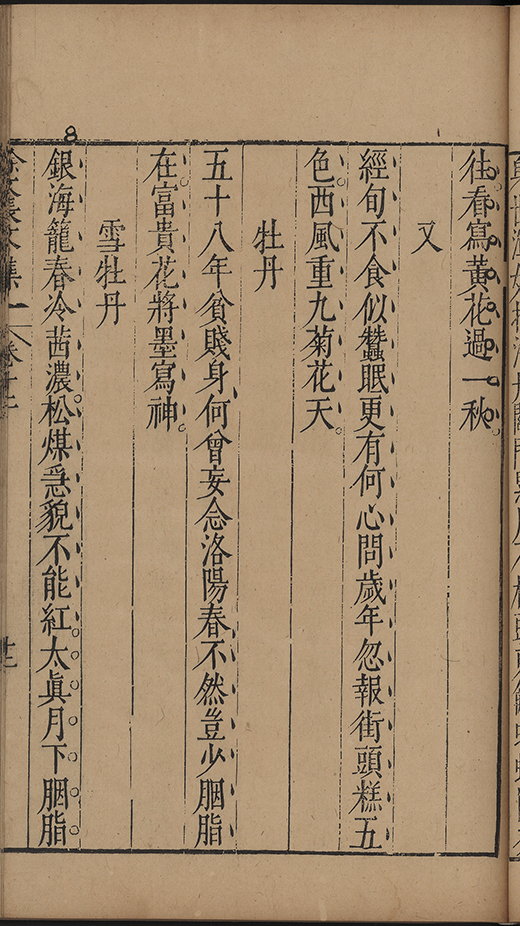 往看寫黃花過一秋
又
經旬不食似蠶眠更有何心問歲年忽報街頭糕五
色西風重九菊花天
牡丹
五十八年貧賤身何曾妄念洛陽春不然豈少胭脂
在富貴花將墨寫神
雪牡丹
銀海籠春冷茜濃松煤急貌不能紅太眞月下胭脂
卷十二
十二
8